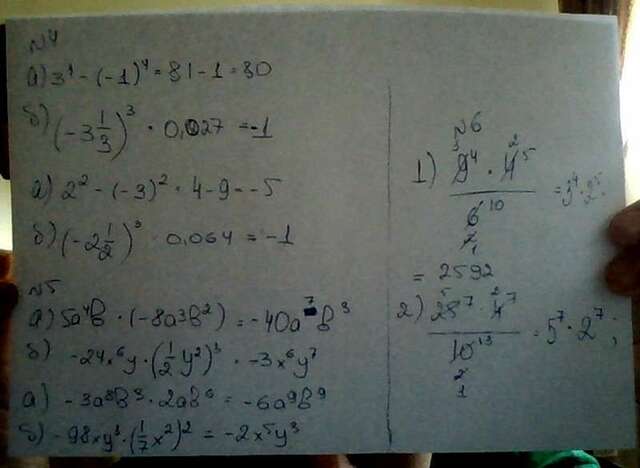 №4
а) 3⁴ - (-1)⁴ = 81 - 1 = 80
б) (-3 1/3)³ · 0,027 = -1
а) 2² - (-3)² = 4 - 9 = -5
б) (-2 1/2)³ · 0,064 = -1
№5
а) 5a⁴b · (-8a³b²) = -40a⁷b³
б) -24x⁶y · (1/2 y²)³ = -3x⁶y⁷
а) -3a⁸b³ · 2ab⁶ = -6a⁹b⁹
б) -98xy³ · (1/7 x²)² = -2x⁵y³
№6
1) 9⁴ · 4⁵ / 6¹⁰ = 3⁴ · 2⁵ =
= 2592
2) 25⁷ · 4⁷ / 10¹³ = 5⁷ · 2⁷ ;